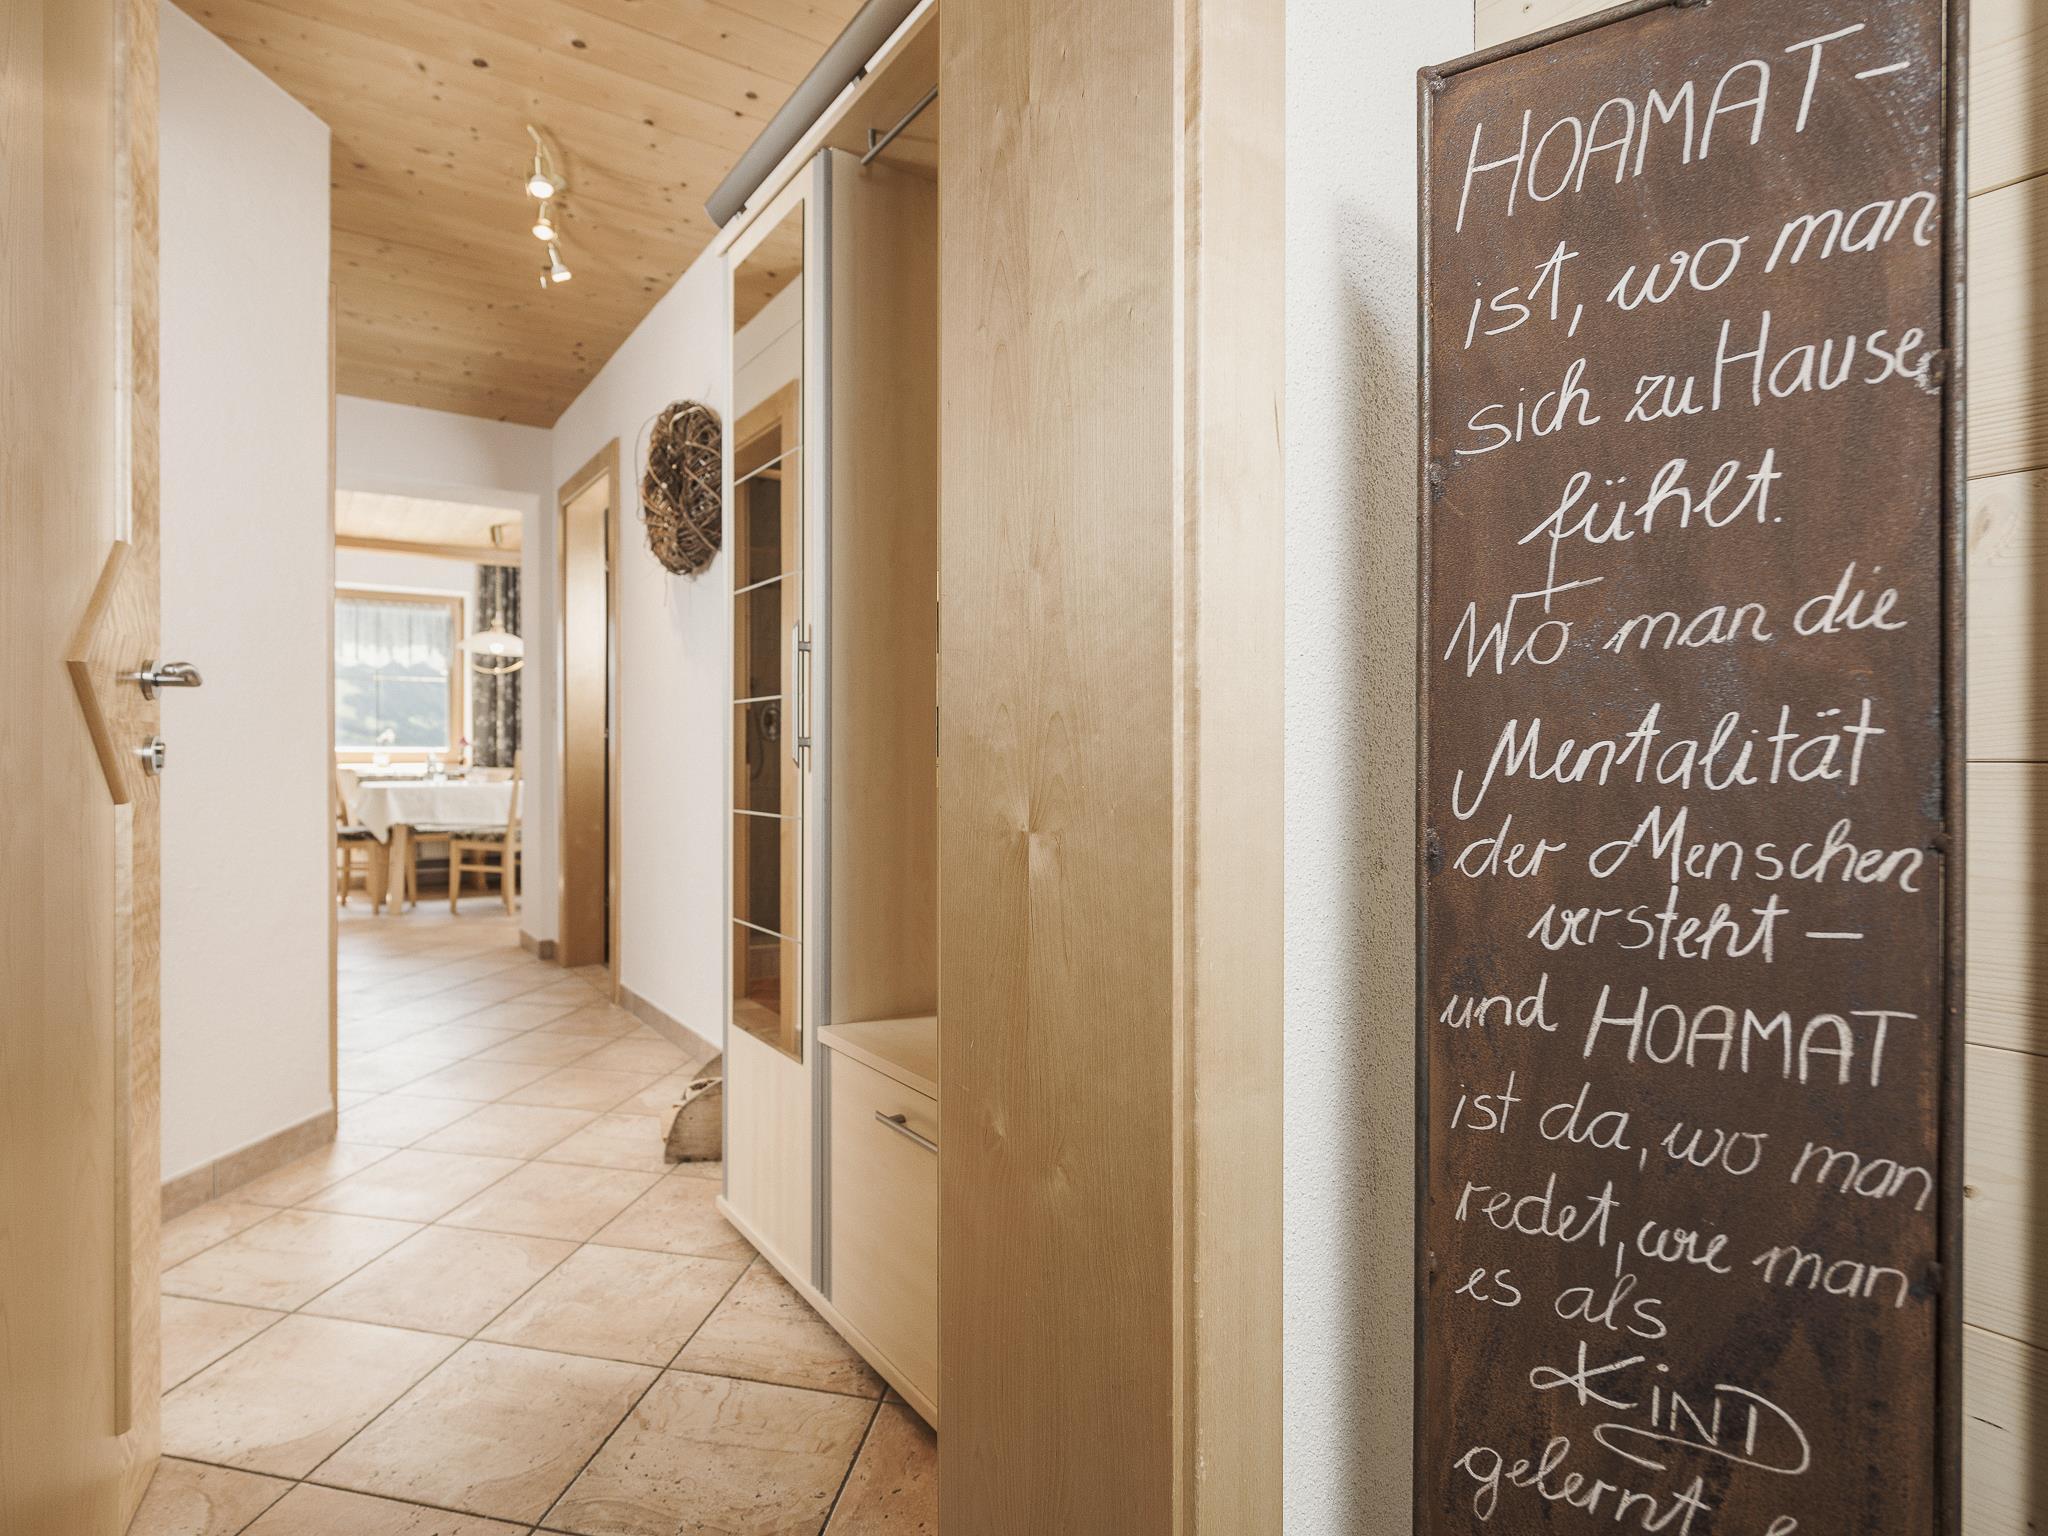 HOAMAT-
ist, wo man
sich zu Hause
fühlt.
Wo man die
Mentalität
der Menschen
versteht -
und HOAMAT
ist da, wo man
redet, wie man
es als
KIND
gelernt